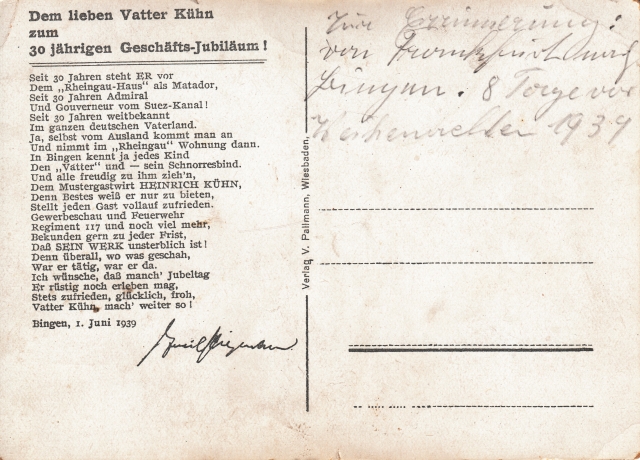 Dem lieben Vatter Kühn
zum
30 jährigen Geschäfts-Jubiläum !
Seit 30 Jahren steht ER vor
Dem „Rheingau-Haus" als Matador,
Seit 30 Jahren Admiral
Und Gouverneur vom Suez-Kanal !
Seit 30 Jahren weitbekannt
Im ganzen deutschen Vaterland.
Ja, selbst vom Ausland kommt man an
Und nimmt im „Rheingau" Wohnung dann.
In Bingen kennt ja jedes Kind
Den „Vatter" und — sein Schnorresbind.
Und alle freudig zu ihm zieh'n,
Dem Mustergastwirt HEINRICH KÜHN,
Denn Bestes weiß er nur zu bieten,
Stellt jeden Gast vollauf zufrieden.
Gewerbeschau und Feuerwehr
Regiment 117 und noch viel mehr,
Bekunden gern zu jeder Frist,
Daß SEIN WERK unsterblich ist !
Denn überall, wo was geschah,
War er tätig, war er da.
Ich wünsche, daß manch' Jubeltag
Er rüstig noch erleben mag,
Stets zufrieden, glücklich, froh,
Vatter Kühn, mach' weiter so !
Bingen, 1. Juni 1939
Verlag V. Pallmann, Wiesbaden.
Zur Errinnerung:
von Frankfurt nach
Bingen. 8 Tage vor
1939